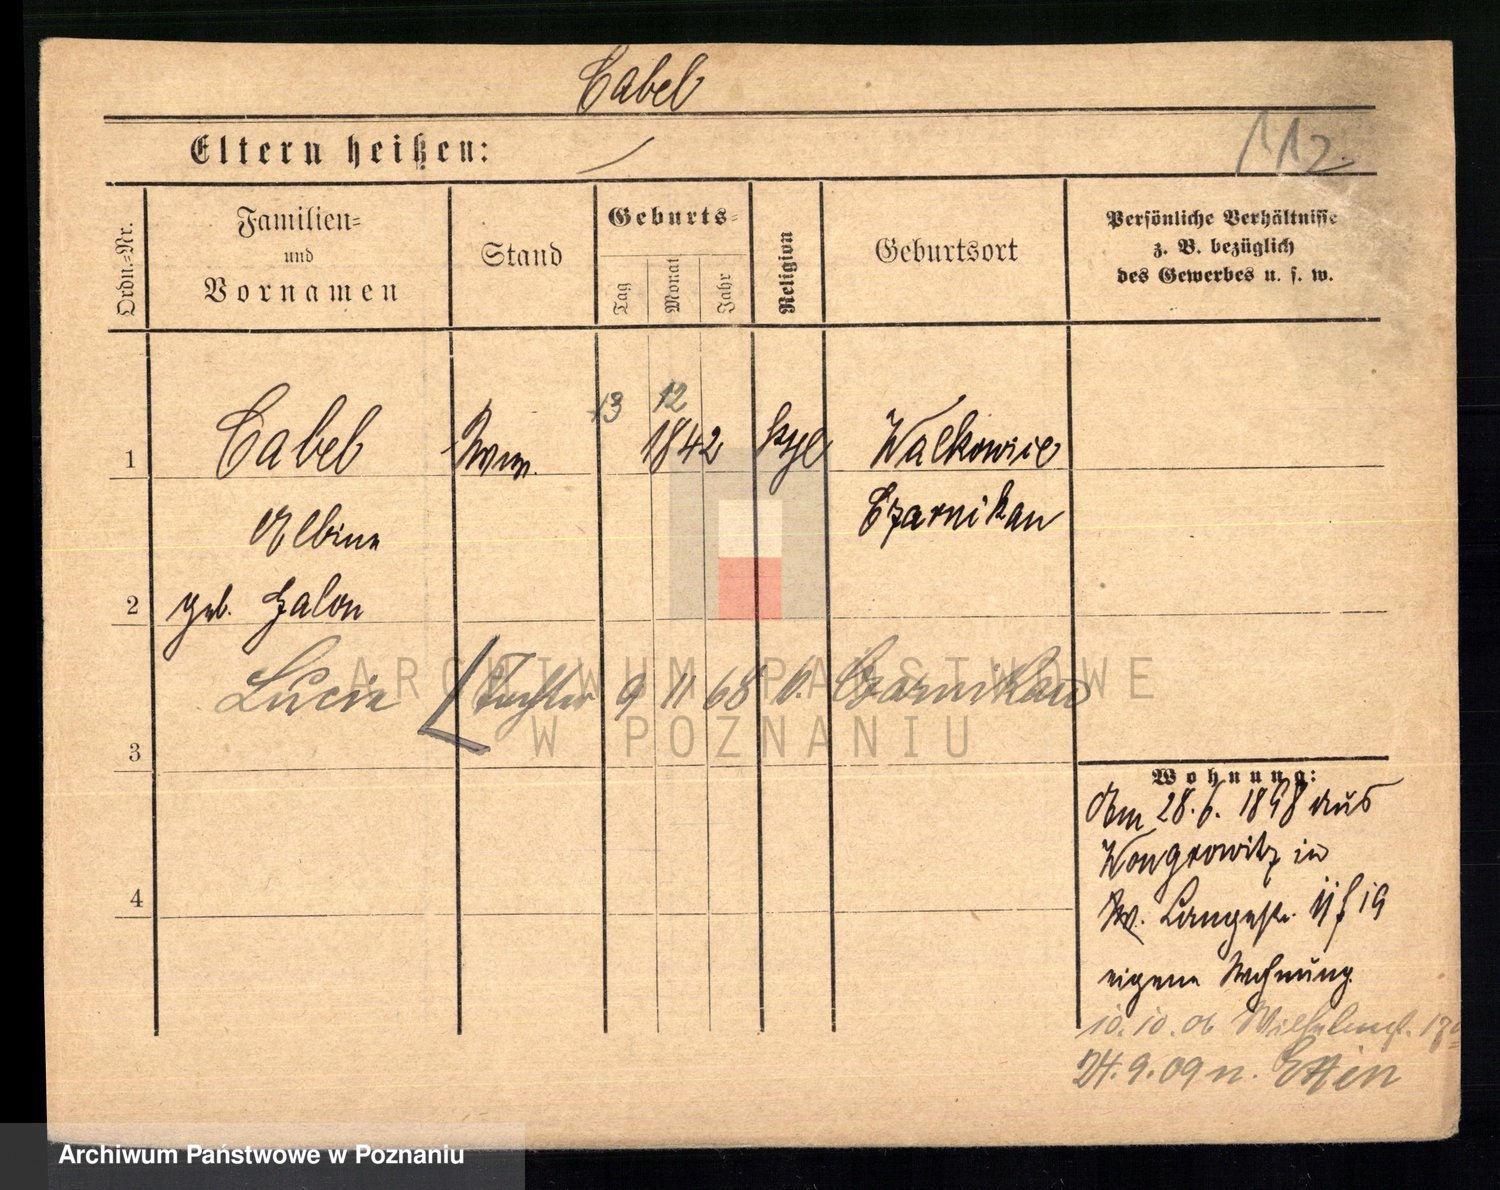 Cabel
Eltern heißen:
112.
Ordn.=Nr.
Familien=
und
Vornamen
Stand
Geburts=
Tag
Monat
Jahr
Religion
Geburtsort
Persönliche Verhältnisse
z. B. bezüglich
des Gewerbes u. s. w.
13 12
1 Cabel Ww. 1842 Walkowice
Albine Czarnikau
2 geb. Zalon
Lucie Tochter 9 11 68 Czarnikau
ARCHIWUM PAŃSTWOWE
W POZNANIU
3
Wohnung:
Am 28.6.1898 aus
Wongrowitz in
Langestr. 19
4
eigene Wohnung
10.10.06 Wilhelmst.
24.9.09 n.
Archiwum Państwowe w Poznaniu